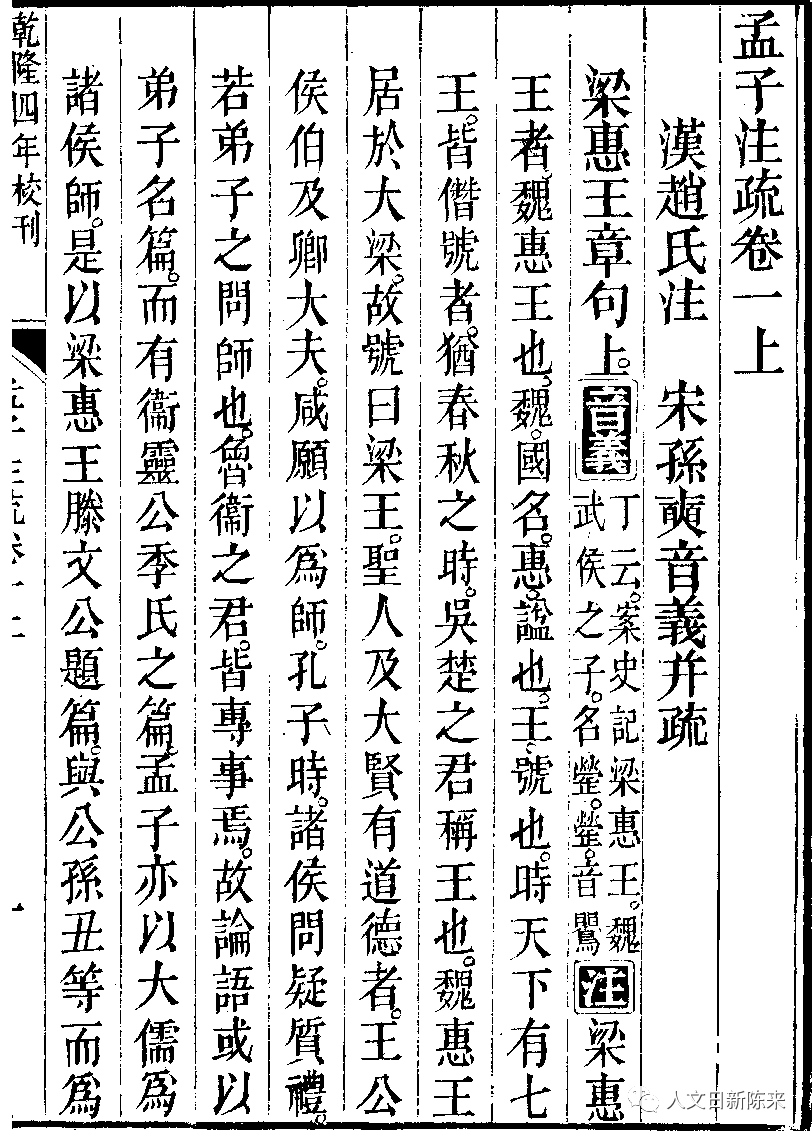 孟子注疏卷一上
漢趙氏注　宋孫奭音義并疏
梁惠王章句上。音義
丁云。案史記梁惠王。魏
武侯之子。名罃。罃。音鸎
注梁惠
王者。魏惠王也。魏。國名。惠。諡也。王。號也。時天下有七
王。皆僭號者。猶春秋之時。吳楚之君稱王也。魏惠王
居於大梁。故號曰梁王。聖人及大賢有道德者。王公
侯伯及卿大夫。咸願以爲師。孔子時。諸侯問疑質禮。
若弟子之問師也。魯衞之君。皆專事焉。故論語或以
弟子名篇。而有衞靈公季氏之篇。孟子亦以大儒爲
諸侯師。是以梁惠王滕文公題篇。與公孫丑等而爲
乾隆四年校刊
一
人文日新陈来